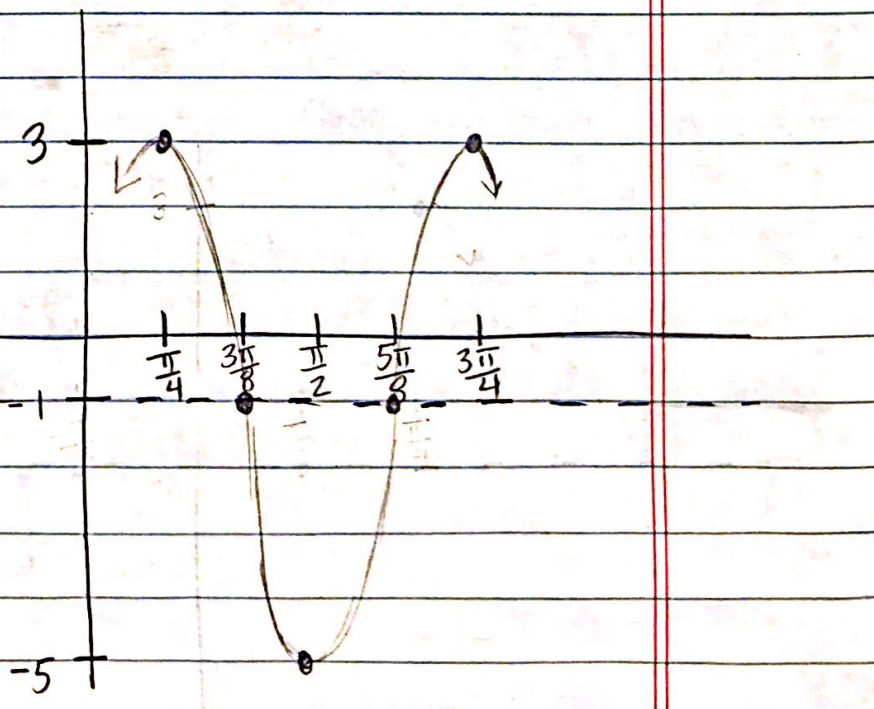 3
π/4 3π/8 π/2 5π/8 3π/4
-1
-5